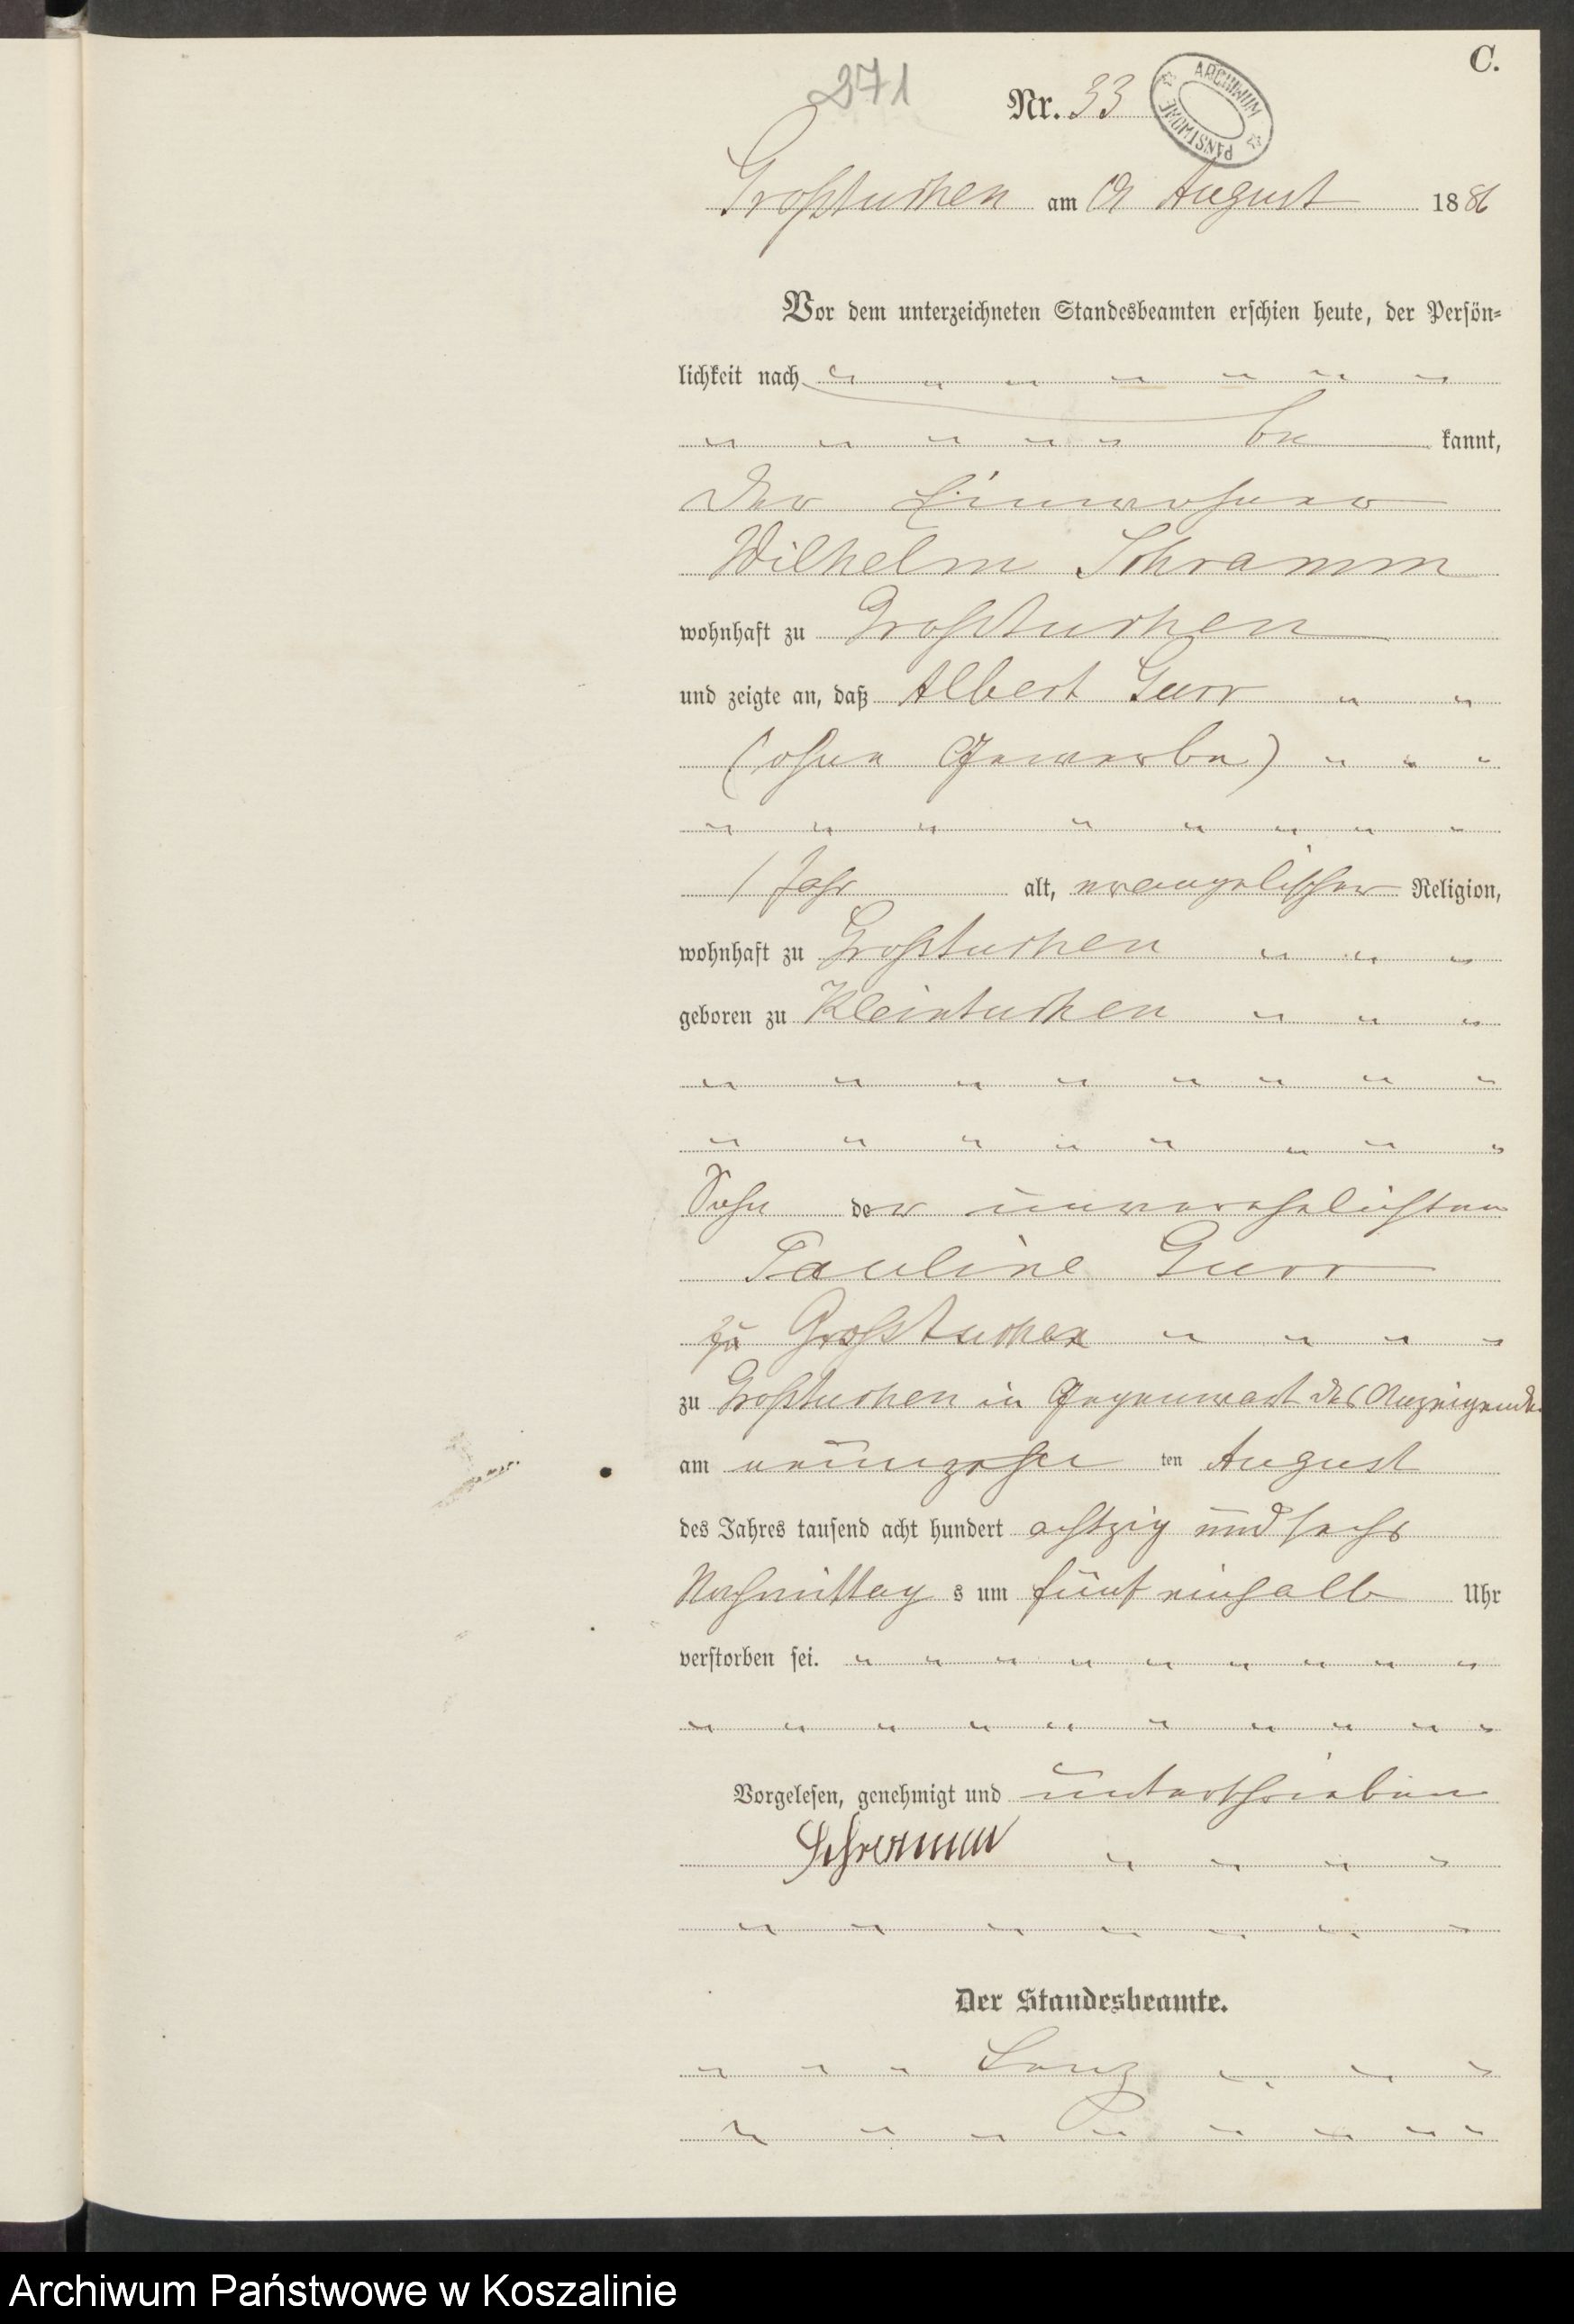 C.
271
Nr. 33
ARCHIWUM PAŃSTWOWE
Großtuchen am August 1886
Vor dem unterzeichneten Standesbeamten erschien heute, der Persön-
lichkeit nach
be kannt,
der Einwohner
Wilhelm Schramm
wohnhaft zu Großtuchen
und zeigte an, daß Albert Gurr
(ohne Gewerbe)
1 Jahr alt, evangelischer Religion,
wohnhaft zu Großtuchen
geboren zu Kleintuchen
Sohn der unverehelichten
Pauline Gurr
zu Großtuchen
zu Großtuchen in Gegenwart des Anzeigenden
am neunzehn ten August
des Jahres tausend acht hundert achtzig und sechs
Nachmittag s um fünf einhalb Uhr
verstorben sei.
Vorgelesen, genehmigt und unterschrieben
Schramm
Der Standesbeamte.
Archiwum Państwowe w Koszalinie